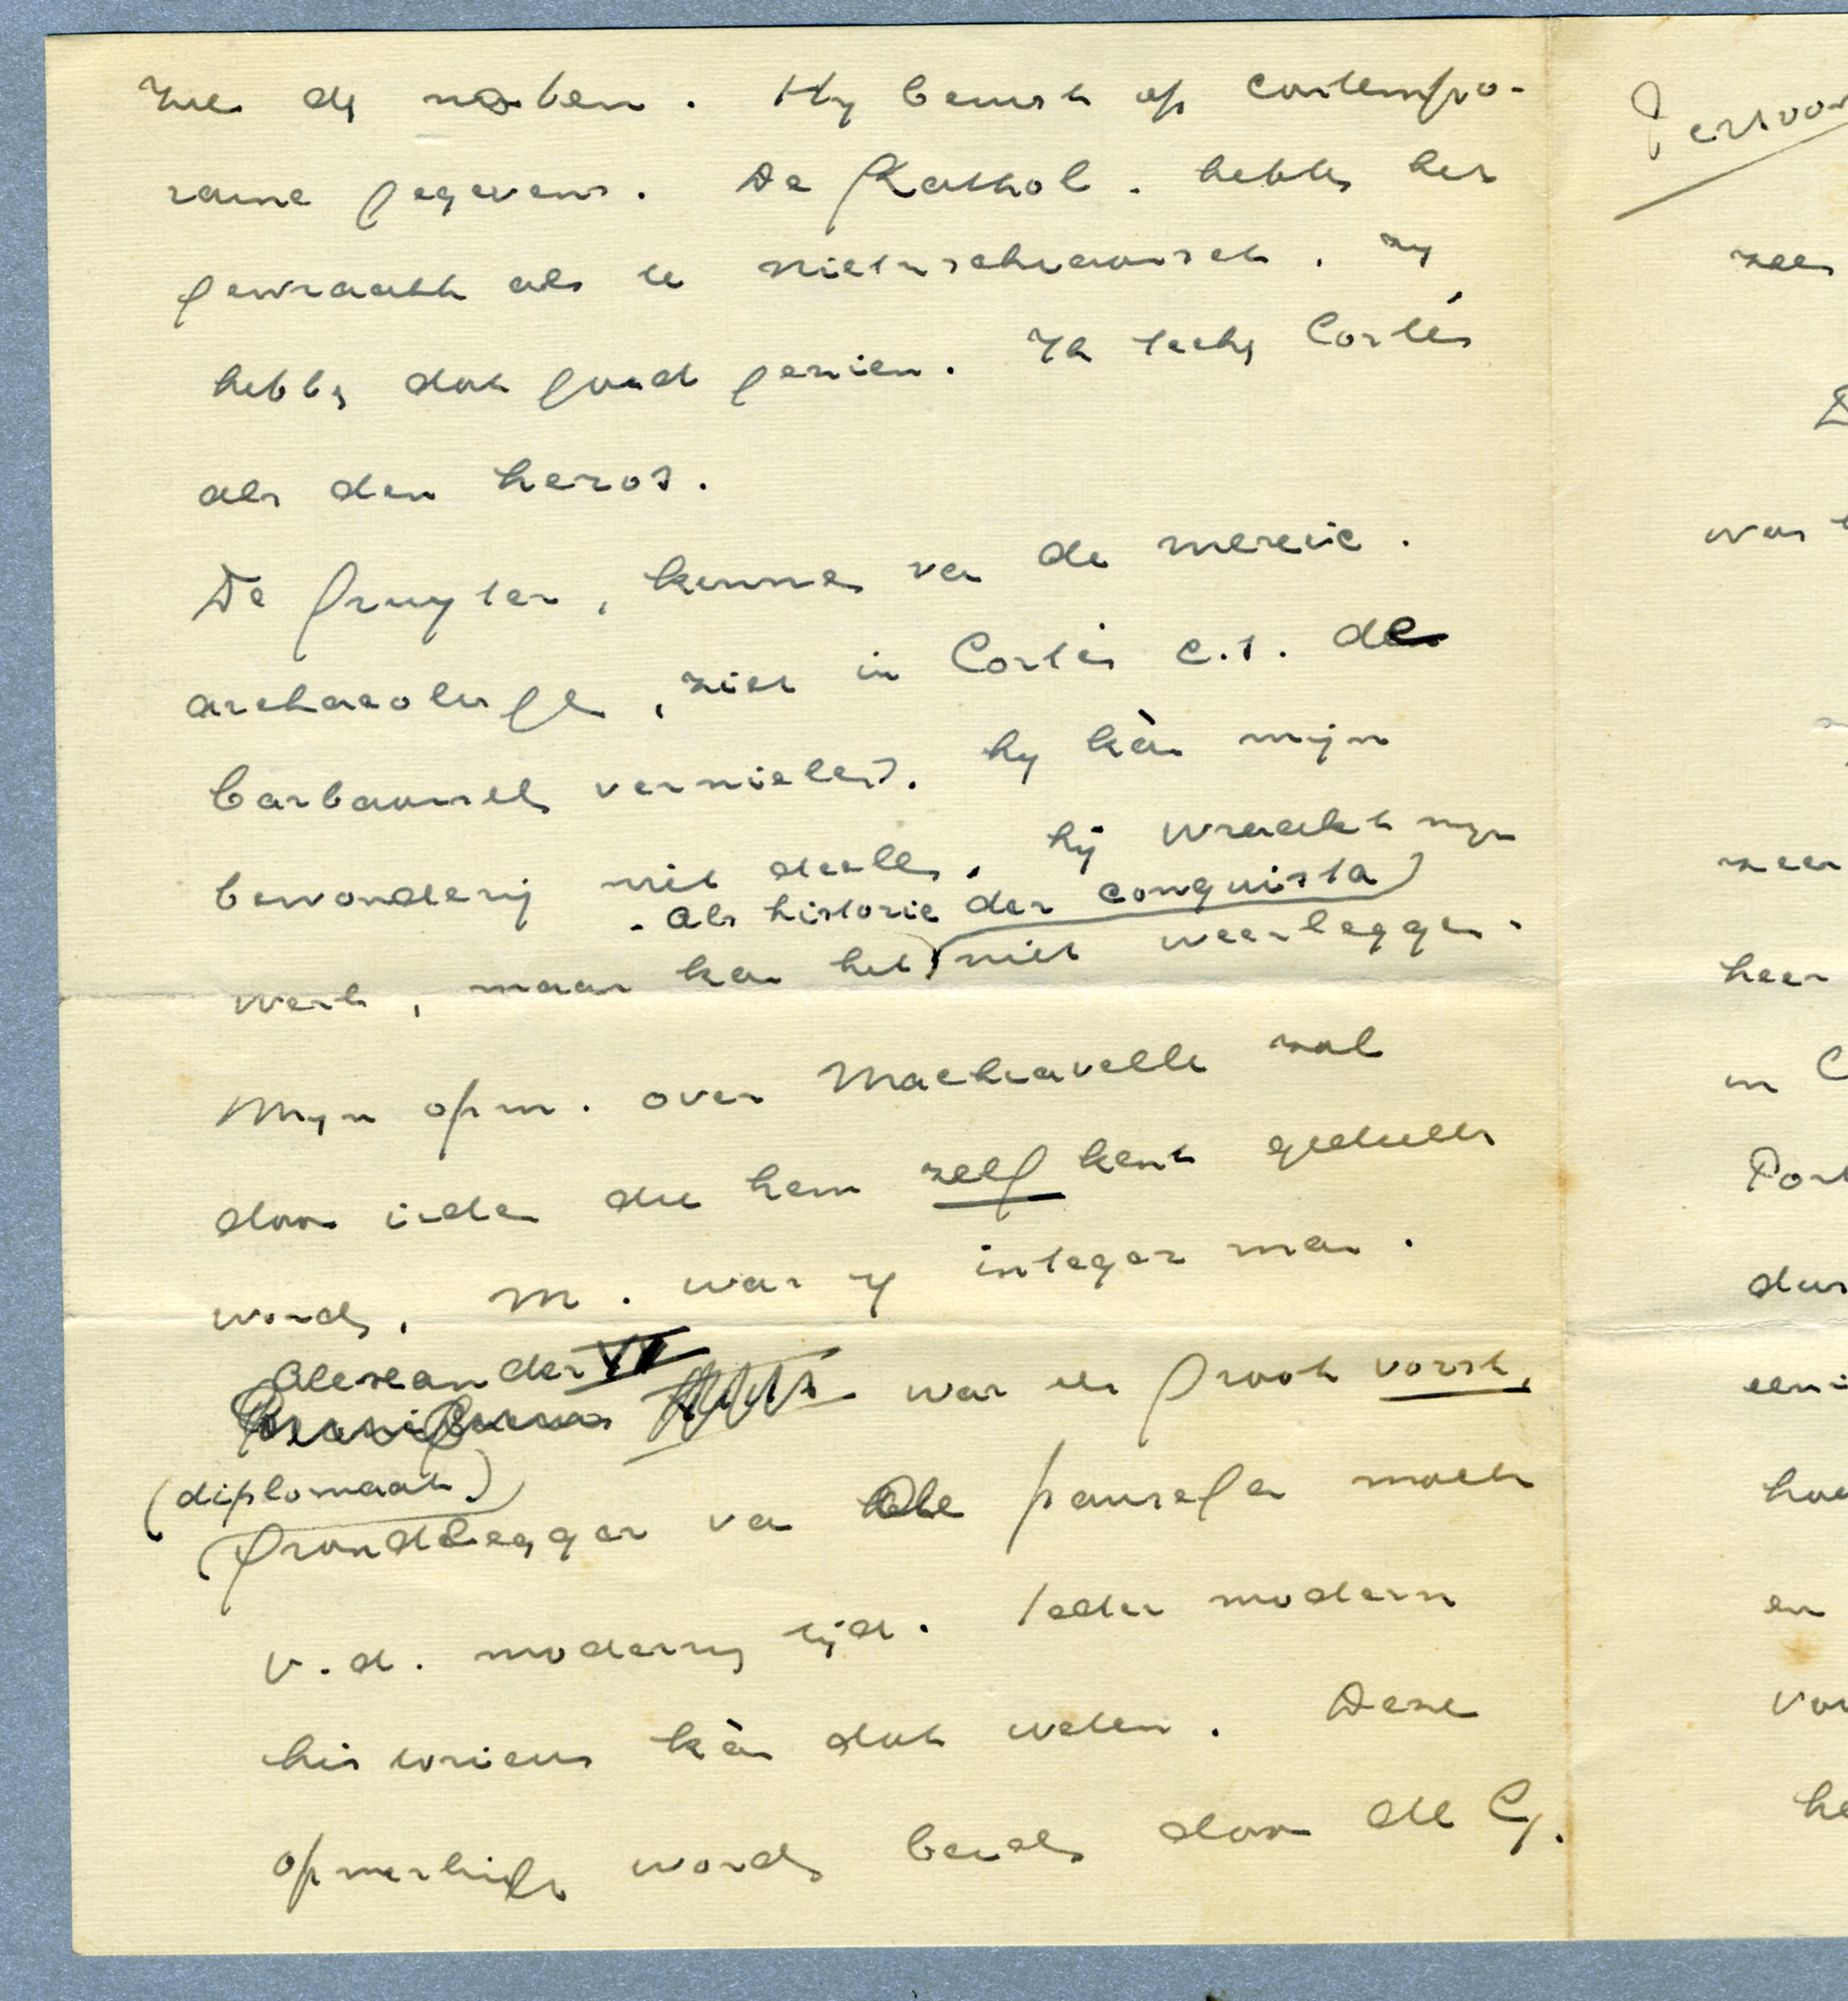 de noten. Hy berust op contempo-
raine gegevens. De Kathol. hebben het
gewraakt als te Nietzscheaansch. Zy
hebben dat goed gezien. Ik teeken Cortés
als den heros.
De Gruyter, kenner van de mexic.
archaeologie, ziet in Cortés c.s. de
barbaarsche vernielers. Hy kàn mijn
bewondering niet deelen. Hij wraakt myn
als historie der conquista)
werk, maar kan het niet weerleggen.
Myn opm. over Machiavelli zal
door ieder die hem zelf kent gedeeld
worden. M. was een integer man.
Alexander VI
was een groot vorst,
(diplomaat)
grondlegger van de pauselen macht
v.d. moderne tijd. Ieder modern
historicus kàn dat weten. Deze
opmerking worden beide door de G.
Persoon
zeer
was
zeer
heer
in C
Port
dus
een
hoe
en
voor
he